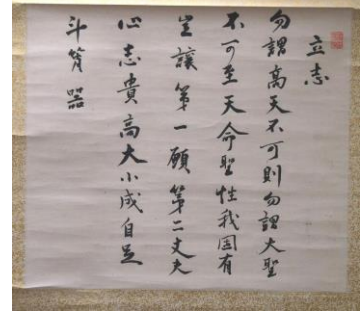 立志
勿謂高天不可則勿謂大聖
不可至天命聖性我固有
豈讓第一願第二丈夫
心志貴高大小成自足
斗筲器